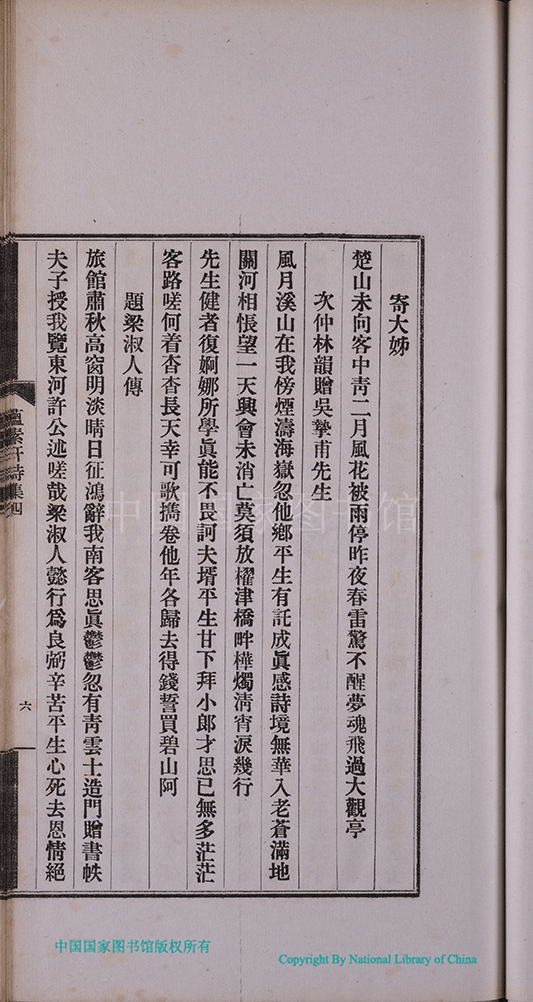 寄大姊
楚山未向客中靑二月風花被雨停昨夜春雷驚不醒夢魂飛過大觀亭
次仲林韻贈吳摯甫先生
風月溪山在我傍煙濤海嶽忽他鄕平生有託成眞感詩境無華入老蒼滿地
關河相悵望一天興會未消亡莫須放櫂津橋畔樺燭淸宵淚幾行
先生健者復婀娜所學眞能不畏訶夫壻平生甘下拜小郞才思已無多茫茫
客路嗟何着杳杳長天幸可歌擕卷他年各歸去得錢誓買碧山阿
題梁淑人傳
旅館肅秋高窗明淡晴日征鴻辭我南客思眞鬱鬱忽有靑雲士造門贈書帙
夫子授我覽東河許公述嗟哉梁淑人懿行爲良弼辛苦平生心死去恩情絕
蘊素軒詩集四
六
中国国家图书馆
中国国家图书馆版权所有
Copyright By National Library of China